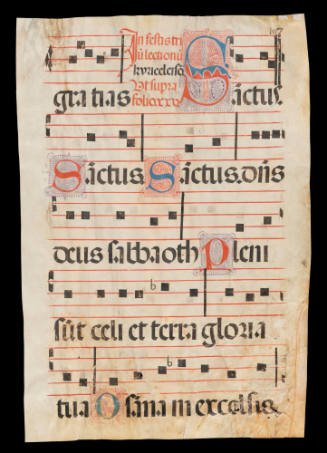 In festis tri
kyrieleison
Ut supra
gratias Sanctus.
Sanctus. Sanctus. dns
deus sabbaoth Pleni
sūt celi et terra gloria
tua Osana in excelsis.